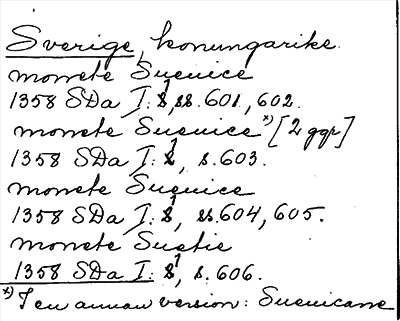 Sverige, konungarike.
monete Suenice
1358 SDa I: 1, ss. 601, 602.
monete Suenice *) [2 ggr]
1358 SDa I: 1, s. 603.
monete Suenice
1358 SDa I: 1, ss. 604, 605.
monete Suetie
1358 SDa I: 1, s. 606.
*) I en annan version: Suenicane